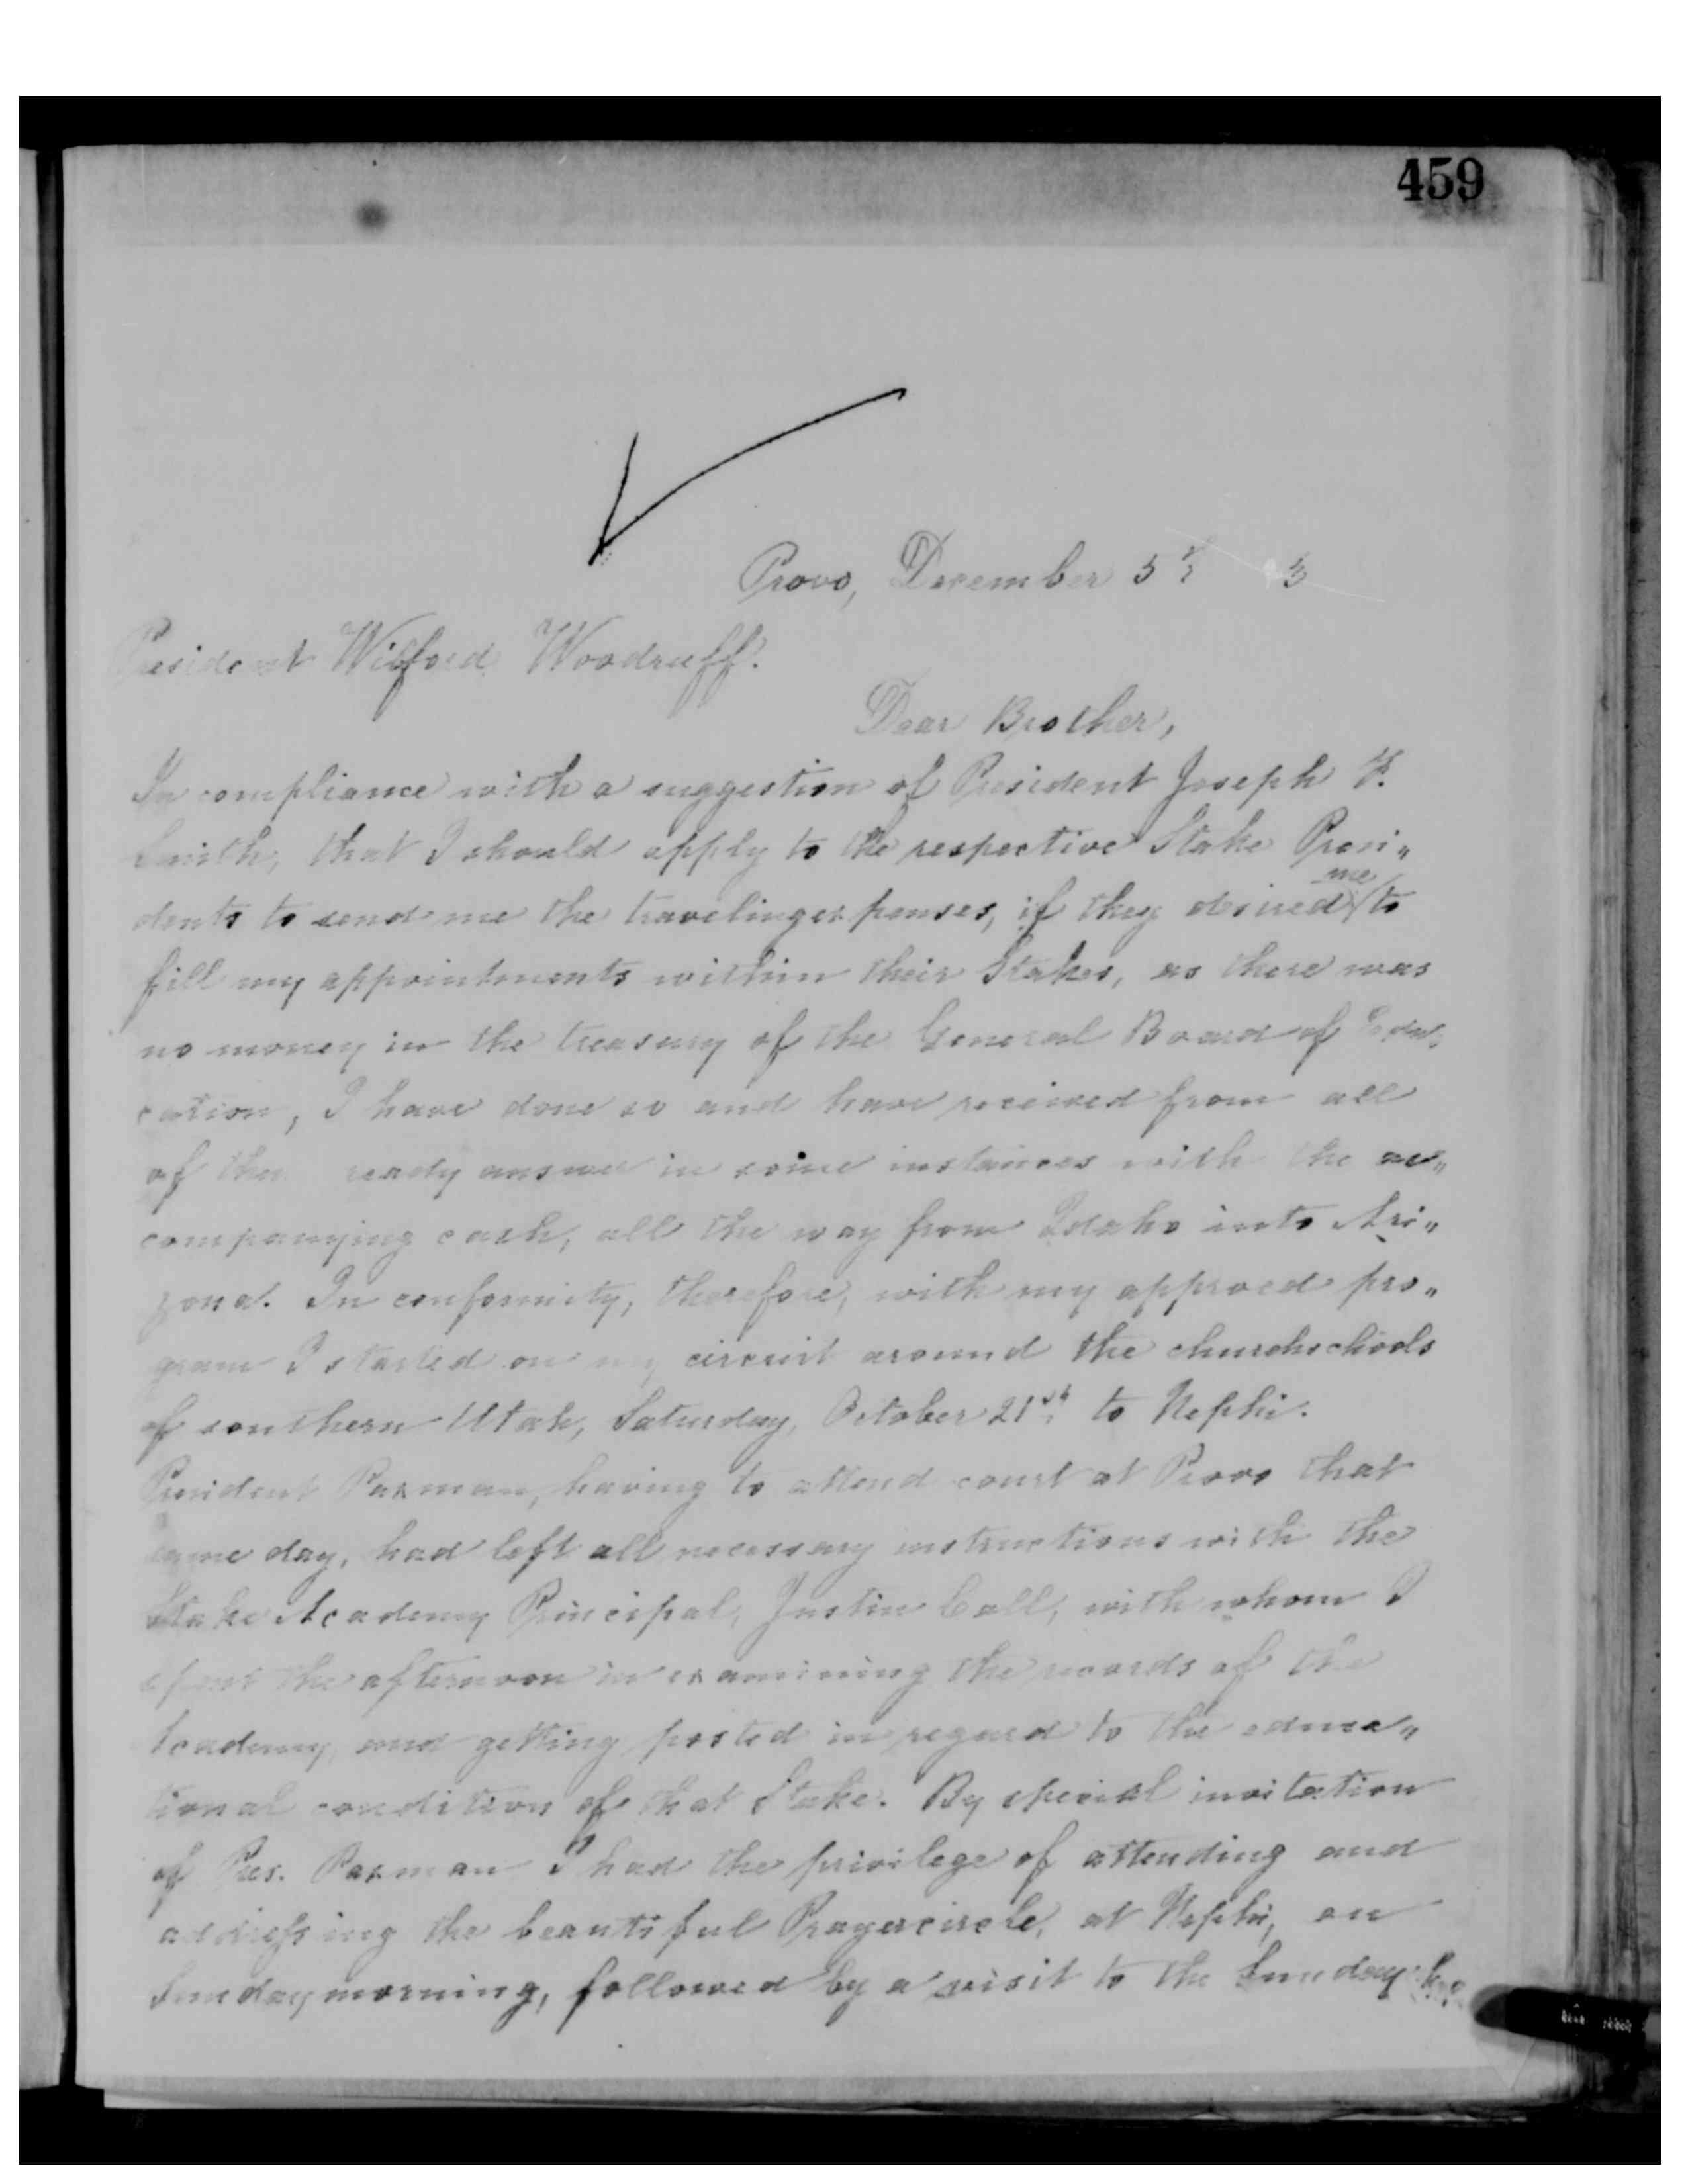 459
Provo, December 5th 3
President Wilford Woodruff.
Dear Brother,
In compliance with a suggestion of President Joseph F.
Smith, that I should apply to the respective Stake Presi„
dents to send me the traveling expenses, if they desired me to
fill my appointments within their Stakes, as there was
no money in the treasury of the General Board of Edu„
cation, I have done so and have received from all
of them ready answer in some instances with the ac„
companying cash, all the way from Idaho into Ari„
zona. In conformity, therefore, with my approved pro„
gram I started on my circuit around the churchschools
of southern Utah, Saturday, October 21st to Nephi.
President Paxman, having to attend court at Provo that
same day, had left all necessary instructions with the
Stake Academy Principal, Justin Call, with whom I
spent the afternoon in examining the records of the
Academy, and getting posted in regard to the educa„
tional condition of that Stake. By special invitation
of Pres. Paxman I had the privilege of attending and
addressing the beautiful Prayercircle, at Nephi, on
Sunday morning, followed by a visit to the Sunday